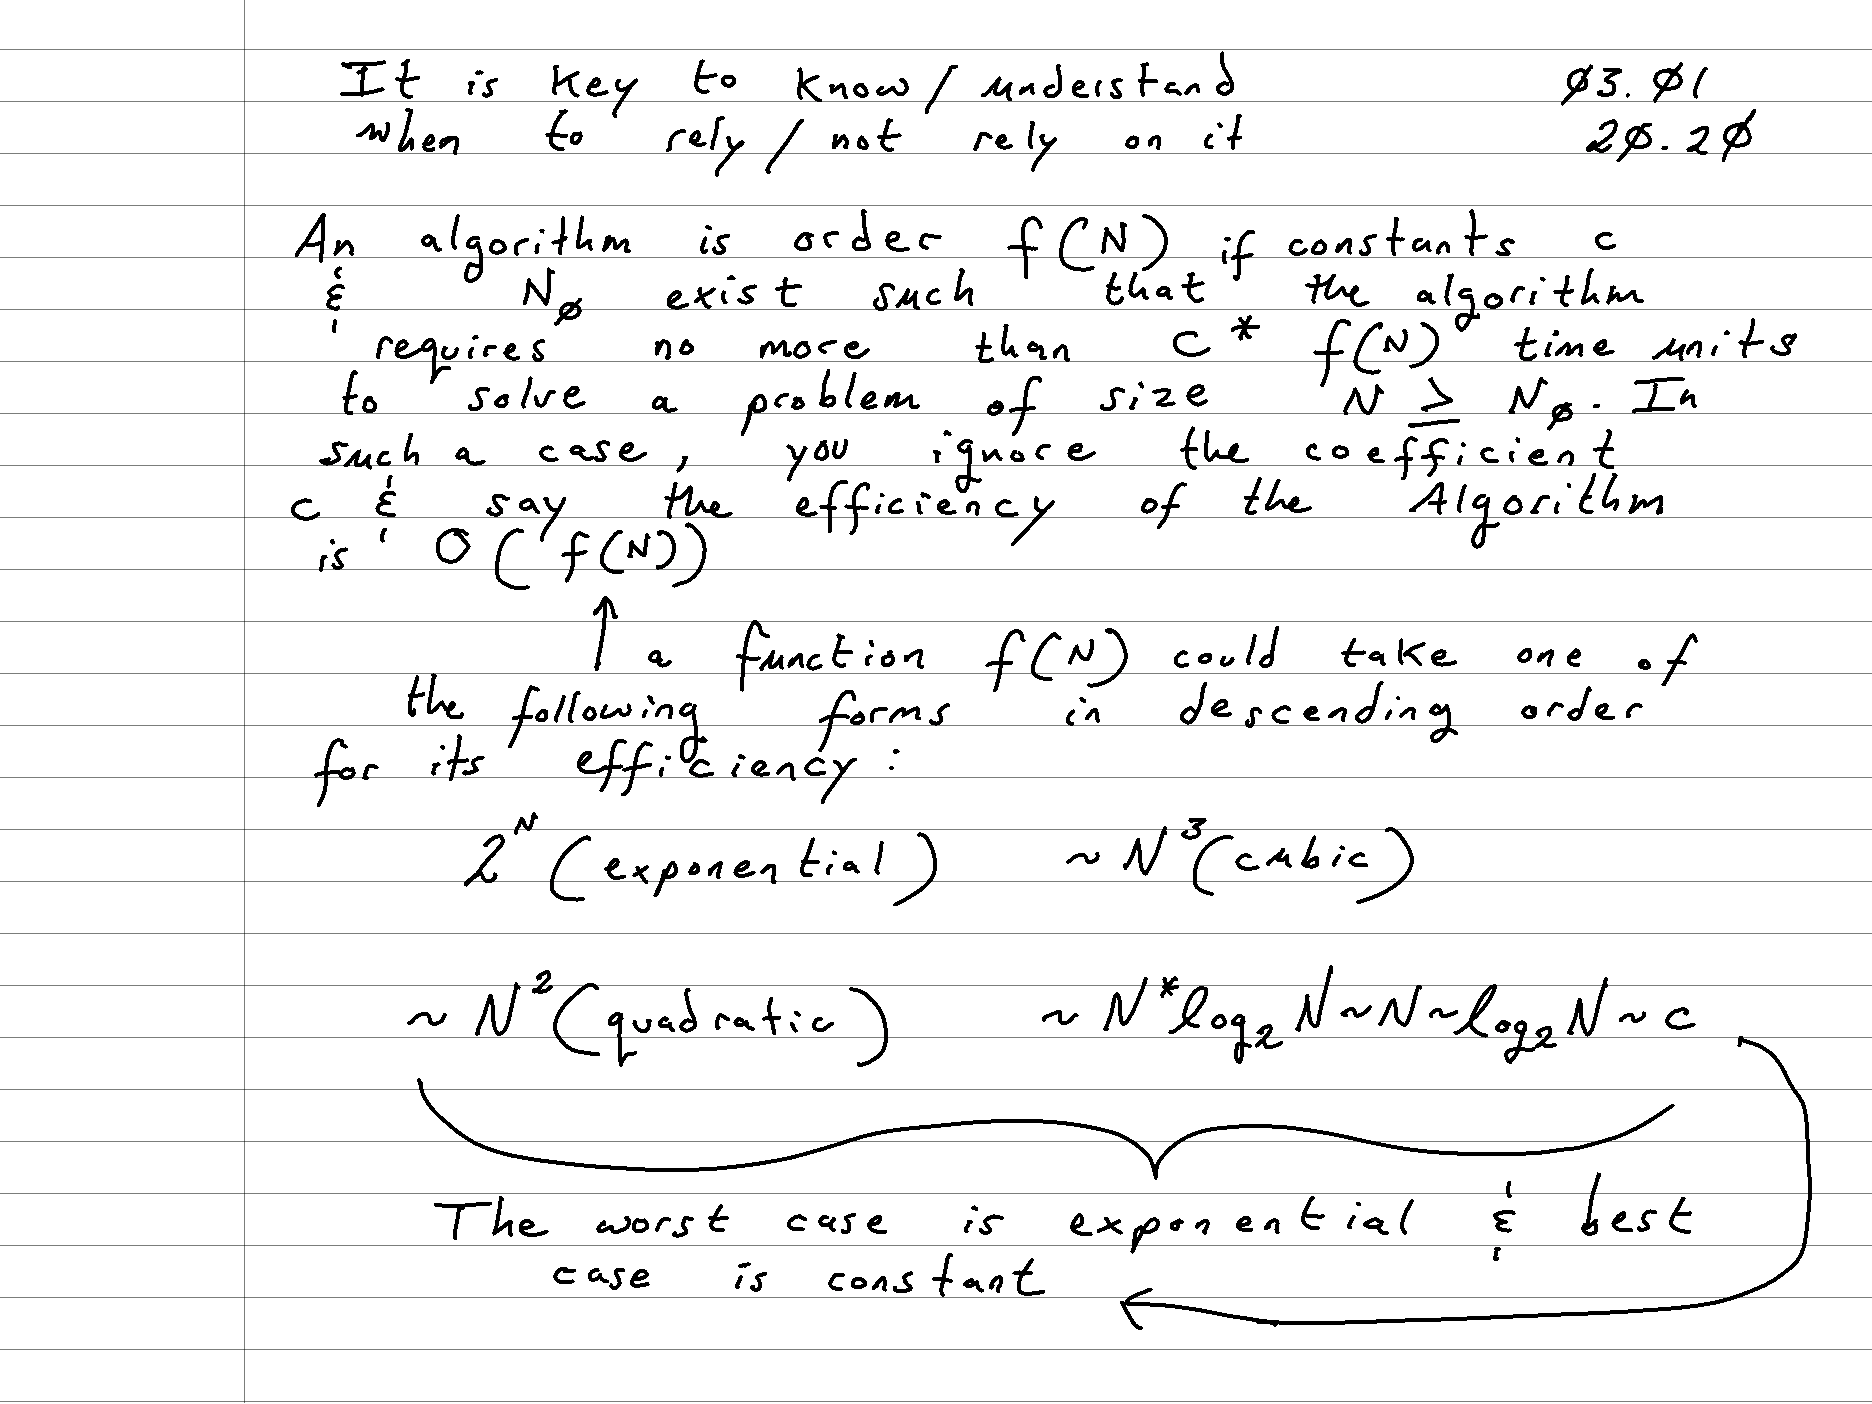 It is key to know/understand 03.01
when to rely/not rely on it 20.20
An algorithm is order f(N) if constants c
& N₀ exist such that the algorithm
requires no more than c * f(N) time units
to solve a problem of size N ≥ N₀. In
such a case, you ignore the coefficient
c & say the efficiency of the Algorithm
is O(f(N))
↑ a function f(N) could take one of
the following forms in descending order
for its efficiency:
2^N (exponential) ~ N³ (cubic)
~ N² (quadratic) ~ N*log₂N ~ N ~ log₂N ~ c
The worst case is exponential & best
case is constant